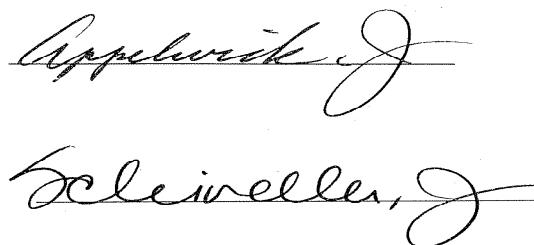 Appelwick, J
Schindler, J